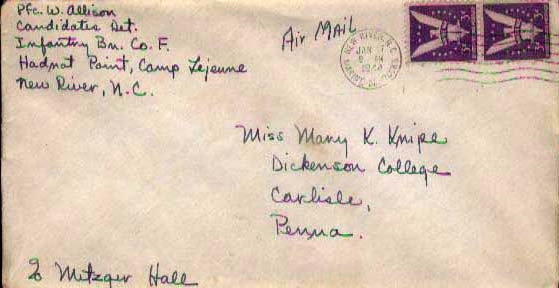 Pfc. W. Allison
Candidates Det.
Infantry Bn. Co. F.
Hadnot Point, Camp Lejeune
New River, N.C.
Air Mail
NEW RIVER, N.C.
JAN
Miss Mary K. Knipe
Dickenson College
Carlisle,
Penna.
% Metzger Hall